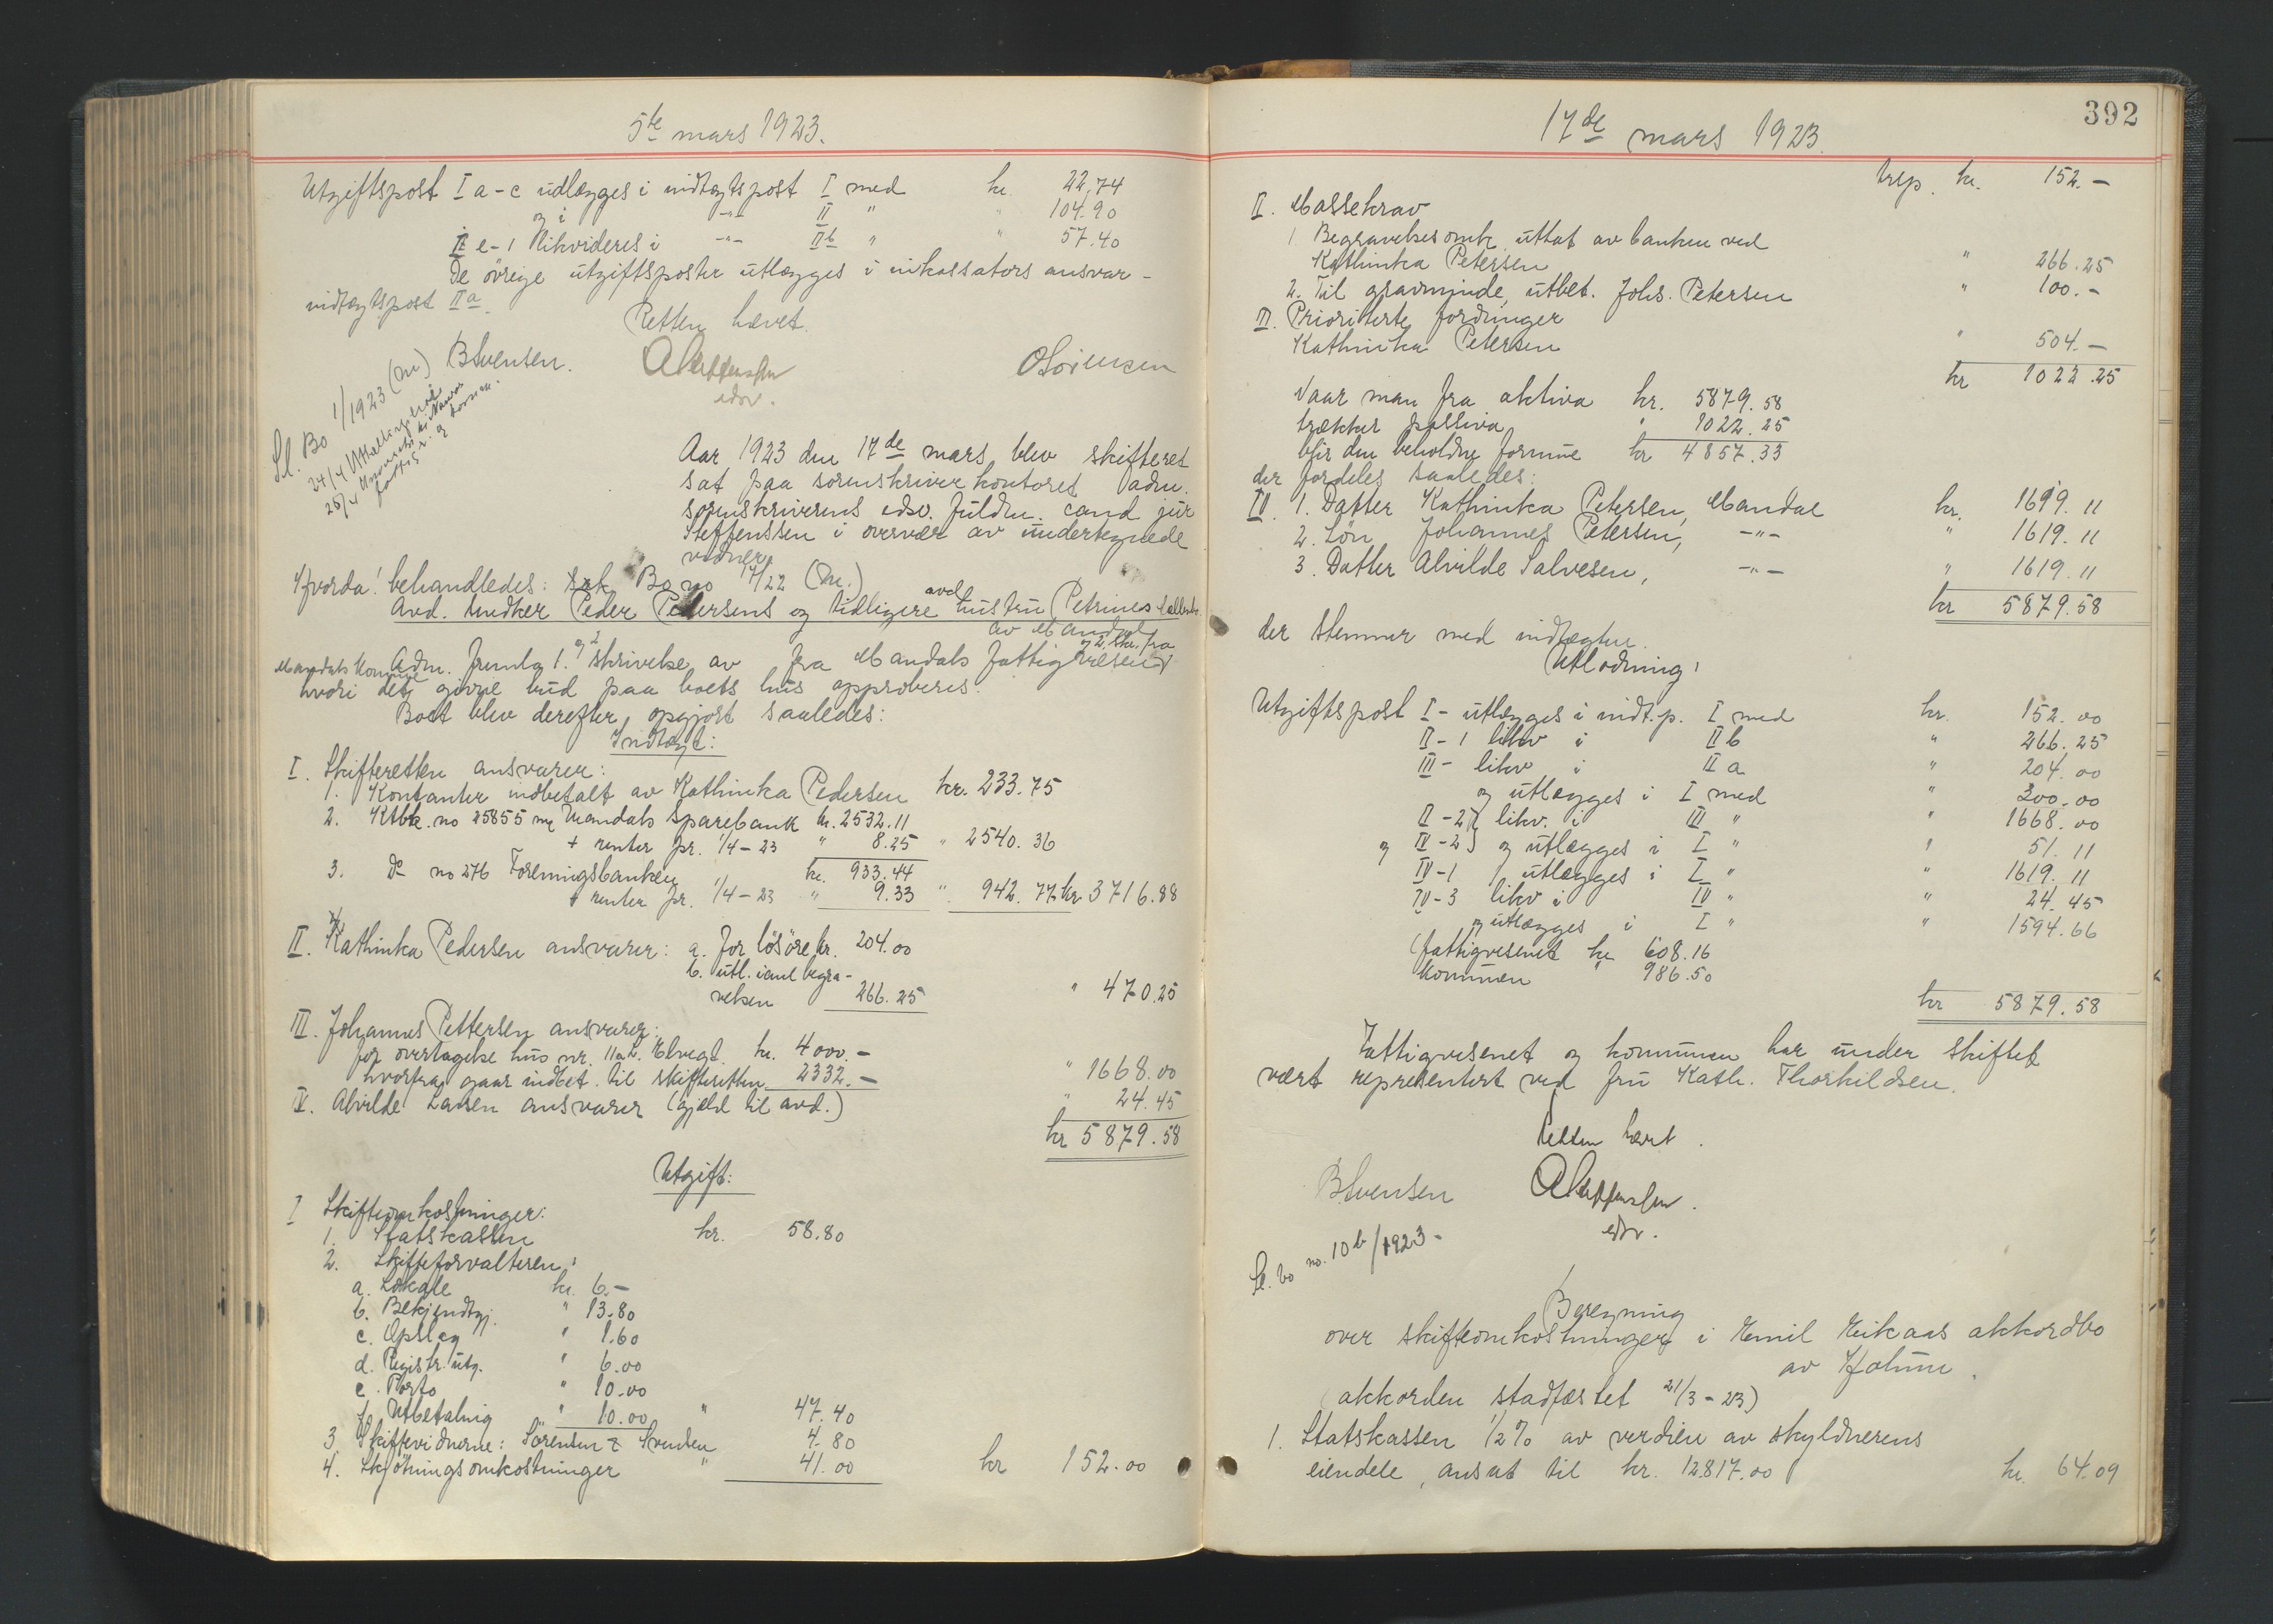 5te mars 1923.
Utgiftspost I a-c udlægges i indtægtspost I med kr. 22.74
og i -"- II " " 104.90
II e-1 likvideres i -"- II b " " 57.40
De övrige utgiftsposter utlægges i inkassators ansvar -
indtægtspost II a.
Retten hævet.
BSvensen. ASteffenssen OSörensen
edsv.
Sl. Bo 1/1923 (M)
24/4 Utbetaling
Aar 1923 den 17de mars blev skifteret
sat paa sorenskriverkontoret adm.
sorenskriverens edsv. fuldm. cand jur
Steffenssen i overvær av undertegnede
vidner.
Hvorda! behandledes: Bo no 17/22 (M.)
Avd. snedker Peder Pedersens og tidligere avd. hustru Petrines
av Mandal
Adm. fremla 1. og 2 skrivelse av fra Mandals fattigvesen
og 2. skr. fra
Mandals Kommune
hvori det givne bud paa boets hus approberes.
Boet blev derefter opgjort saaledes:
Indtægt:
I. Skifteretten ansvarer:
1. Kontanter indbetalt av Kathinka Pedersen kr. 233.75
2. Ktbk. no 25855 Mandals Sparebank kr. 2532.11
+ renter pr. 1/4-23 " 8.25 " 2540.36
3. Do no 276 Foreningsbanken kr. 933.44
+ renter pr. 1/4-23 " 9.33 " 942.77 kr 3716.88
II. Kathinka Pedersen ansvarer: a. for lösöre kr. 204.00
b. utl. i anl begra-
velsen 266.25 " 470.25
III. Johannes Pettersen ansvarer:
for overtagelse hus nr. 11a2. Elvegt. kr. 4000.-
hvorfra gaar indbet. til skifteretten 2332.- " 1668.00
IV. Alvilde Larsen ansvarer (gjæld til avd.) " 24.45
kr 5879.58
Utgift:
I Skifteomkostninger:
1. Statskassen kr. 58.80
2. Skifteforvalteren:
a. Lokale kr. 6.-
b. Bekjendtgj. " 13.80
c. Opslag " 1.60
d. Registr. utg. " 6.00
e. Porto " 10.00
f. Utbetaling " 10.00 " 47.40
3. Skiftevidnerne: Sörensen & Svendsen 4.80
4. Skjötningsomkostninger " 41.00 kr 152.00
392
17de mars 1923.
trsp. kr. 152.-
II. Massekrav
1. Begravelsesomk. uttat av banken ved
Kathinka Petersen " 266.25
2. Til gravminde, utbet. Johs. Petersen " 100.-
III. Prioriterte fordringer
Kathinka Petersen " 504.-
kr 1022.25
Naar man fra aktiva kr. 5879.58
trækker passiva " 1022.25
blir den beholdne formue kr 4857.33
der fordeles saaledes:
IV. 1. Datter Kathinka Petersen, Mandal kr. 1619.11
2. Sön Johannes Petersen, -"- " 1619.11
3. Datter Alvilde Salvesen, -"- " 1619.11
kr 5879.58
der stemmer med indtægten.
Utlodning:
Utgiftspost I - utlægges i indt.p. I med kr. 152.00
II-1 likv i II b " 266.25
III- likv i II a " 204.00
og utlægges i I med " 300.00
II-2 } likv. i III " " 1668.00
og IV-2 } og utlægges i I " " 51.11
IV-1 utlægges i I " " 1619.11
IV-3 likv i IV " " 24.45
og utlægges i I " " 1594.66
(fattigvesenet kr 608.16
kommunen " 986.50
kr 5879.58
Fattigvesenet og kommunen har under skiftet
vært representert ved fru Kath. Thorkildsen.
Retten hævet.
BSvensen ASteffenssen.
edsv.
Sl. bo no. 10b/1923-
Beregning
over skifteomkostninger i Emil Eikaas akkordbo
av Holum.
(akkorden stadfæstet 21/3-23)
1. Statskassen 1/2 % av verdien av skyldnerens
eiendele, ansat til kr. 12.817.00 kr. 64.09